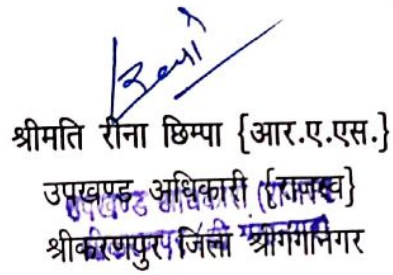 श्रीमति रीना छिम्पा {आर.ए.एस.}
उपखण्ड अधिकारी {राजस्व}
श्रीकरणपुर, जिला श्रीगंगानगर